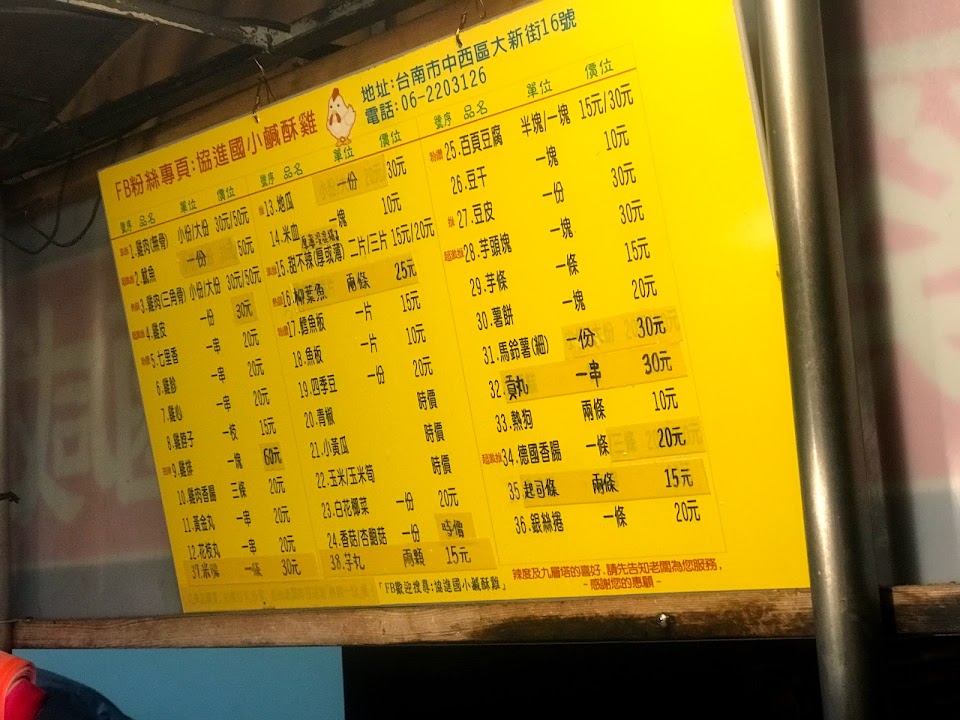 FB粉絲專頁:協進國小鹹酥雞
地址:台南市中西區大新街16號
電話:06-2203126
號序 品名 單位 價位
1.雞肉(無骨) 小份/大份 30元/50元
2.魷魚 一份 50元
3.雞肉(三角骨) 小份/大份 30元/50元
4.雞皮 一份 30元
5.七里香 一串 20元
6.雞胗 一串 20元
7.雞心 一串 20元
8.雞脖子 一枝 15元
9.雞排 一塊 60元
10.雞肉香腸 三條 20元
11.黃金丸 一串 20元
12.花枝丸 一串 20元
37.米腸 一條 30元
號序 品名 單位 價位
13.地瓜 一份 30元
14.米血 一塊 10元
15.甜不辣(厚或薄) 二片/三片 15元/20元
16.柳葉魚 兩條 25元
17.鱈魚板 一片 15元
18.魚板 一片 10元
19.四季豆 一份 20元
20.青椒 時價
21.小黃瓜 時價
22.玉米/玉米筍 時價
23.白花椰菜 一份 20元
24.香菇/杏鮑菇 一份 時價
38.芋丸 兩顆 15元
號序 品名 單位 價位
25.百頁豆腐 半塊/一塊 15元/30元
26.豆干 一塊 10元
27.豆皮 一份 30元
28.芋頭塊 一塊 30元
29.芋條 一條 15元
30.薯餅 一塊 20元
31.馬鈴薯(細) 一份 30元
32.貢丸 一串 30元
33.熱狗 兩條 10元
34.德國香腸 一條 20元
35起司條 兩條 15元
36.銀絲捲 一條 20元
「FB歡迎搜尋:協進國小鹹酥雞」
辣度及九層塔的喜好,請先告知老闆為您服務,
- 感謝您的惠顧 -